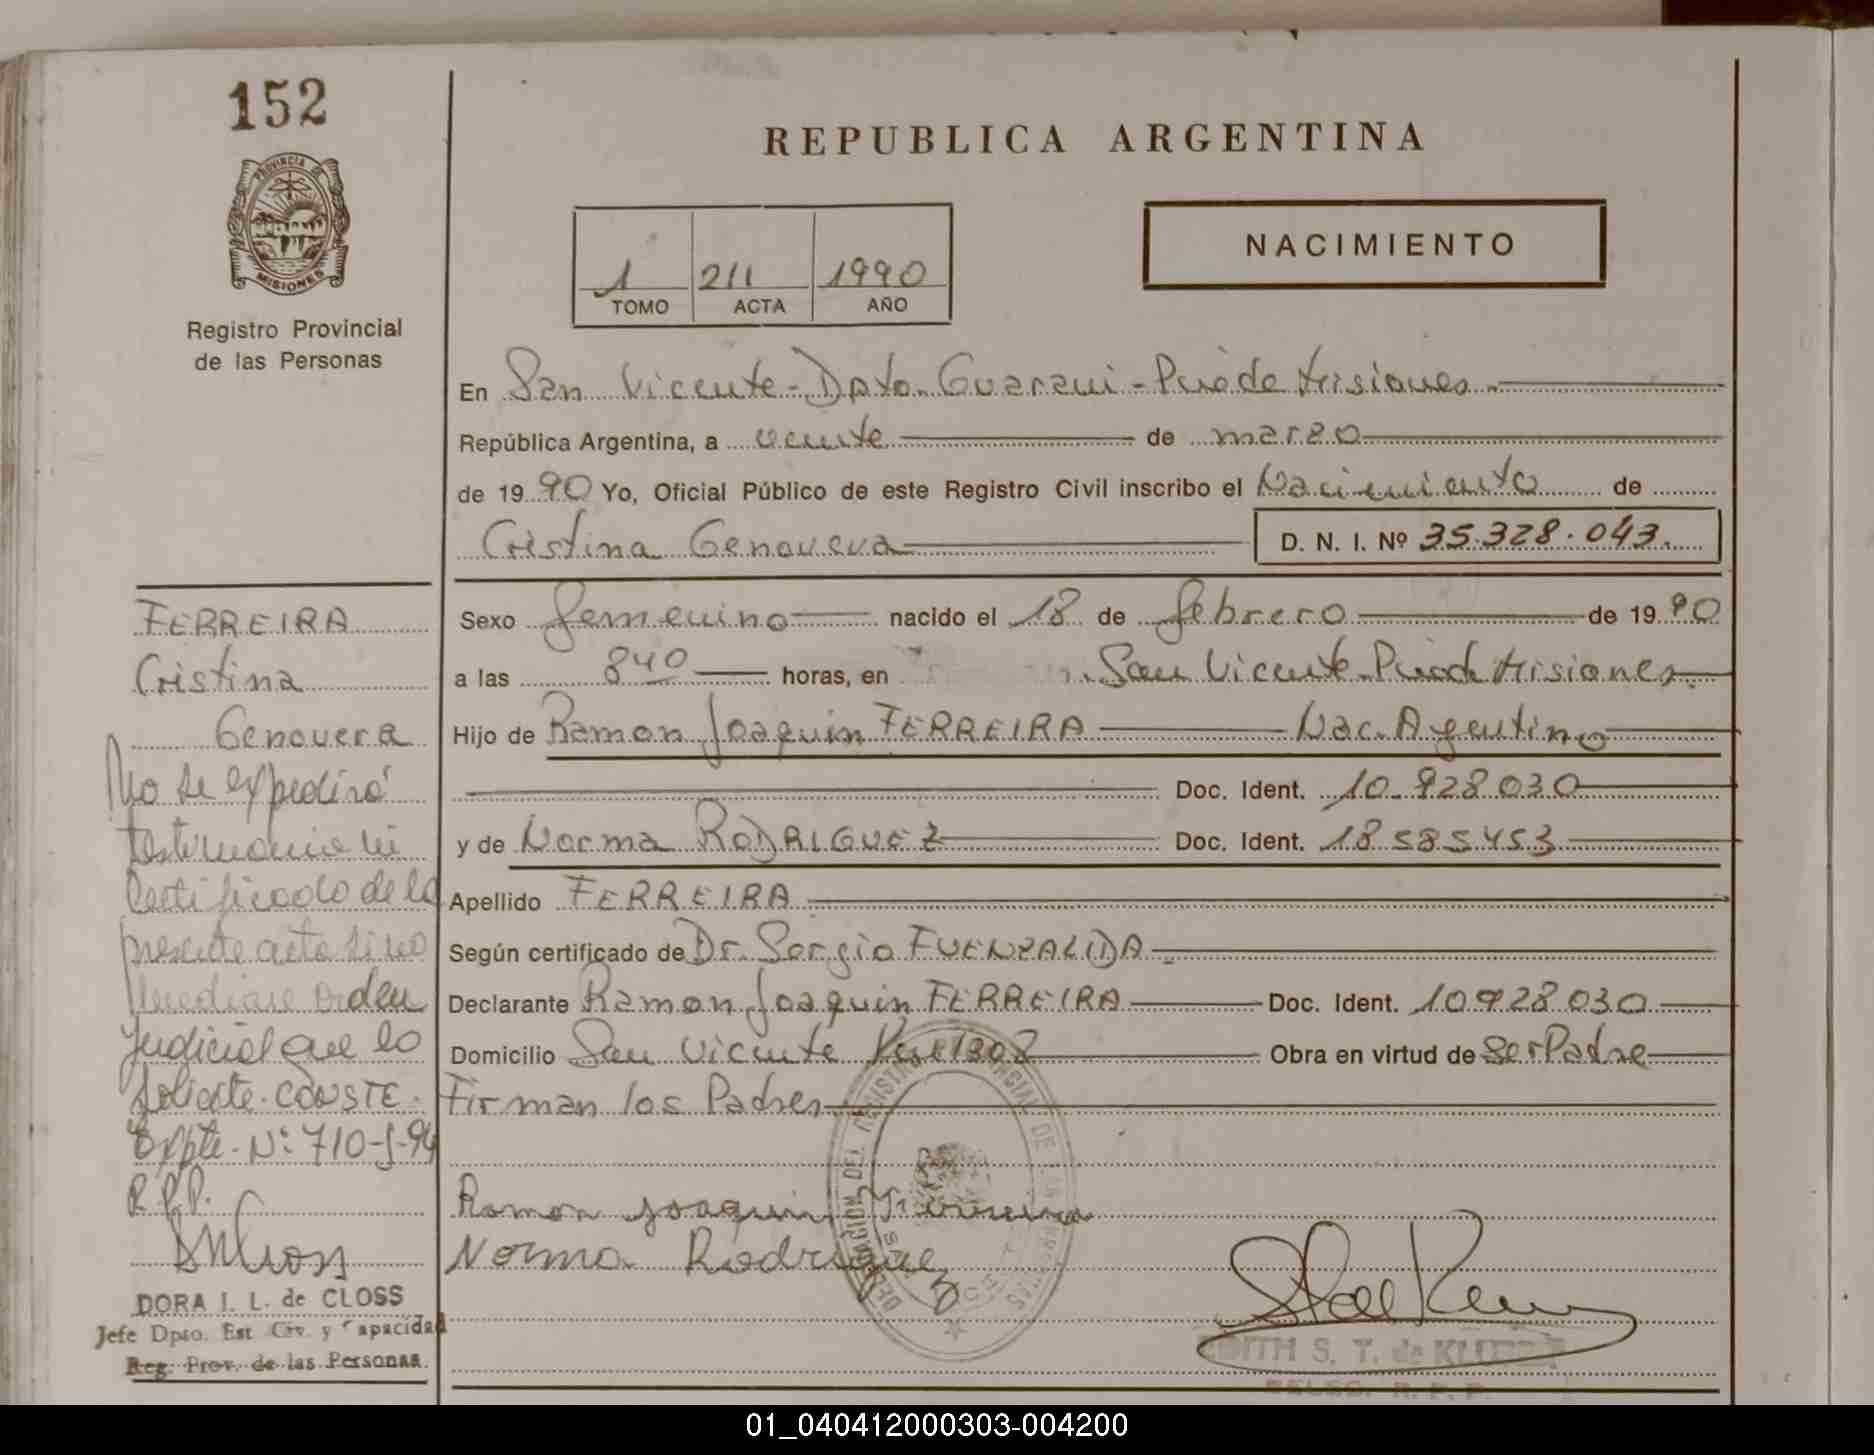 152
PROVINCIA DE
MISIONES
Registro Provincial
de las Personas
REPUBLICA ARGENTINA
1 211 1990
TOMO ACTA AÑO
NACIMIENTO
En San Vicente - Dpto. Guarani - Pcia de Misiones
República Argentina, a veinte de marzo
de 1990 Yo, Oficial Público de este Registro Civil inscribo el Nacimiento de
Cristina Genoveva D. N. I. Nº 35.328.043.
Sexo femenino nacido el 18 de febrero de 1990
a las 840 horas, en San Vicente - Pcia de Misiones.
Hijo de Ramon Joaquin FERREIRA Nac. Argentino
Doc. Ident. 10.928 030
y de Norma RODRIGUEZ Doc. Ident. 18 585 453
Apellido FERREIRA
Según certificado de Dr. Sergio FUENZALIDA
Declarante Ramon Joaquin FERREIRA Doc. Ident. 10 928 030
Domicilio San Vicente Obra en virtud de Ser Padre
Firman los Padres
Ramon Joaquin Ferreira
Norma Rodriguez
FERREIRA
Cristina
Genoveva
No se expedirá
testimonio ni
certificado de la
presente acta si no
mediare orden
judicial que lo
solicite. CONSTE.
Expte. Nº 710-J-94
R.P.P.
DORA I. L. de CLOSS
Jefe Dpto. Est Civ. y Capacidad
Reg. Prov. de las Personas.
DELEGACION DEL REGISTRO PROVINCIAL DE LAS PERSONAS
EDITH S. T. de
DELEG. R. P. P.
01_040412000303-004200